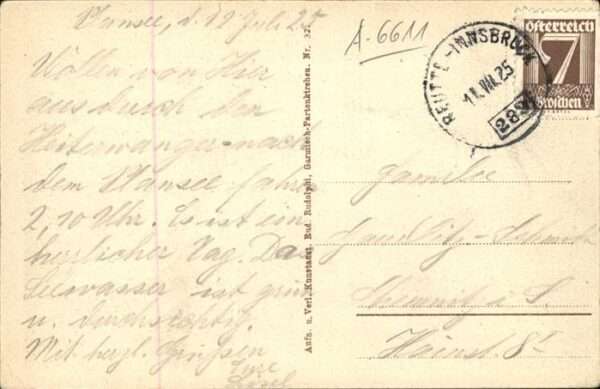 Plansee, d. 12 Juli 25
Wollen von Hier
aus durch den
Heiterwanger- nach
dem Plansee fahren
2,10 Uhr. Es ist ein
herrlicher Tag. Das
Seewasser ist grün
u. durchsichtig.
Mit herzl. Grüssen
Aufn. u. Verl. Kunstanst. Rud. Rudolphi, Garmisch-Partenkirchen. Nr. 32
A-6611
REUTTE-INNSBRUCK
VII. 25
Österreich
7
Groschen
Familie
Chemnitz i. S.